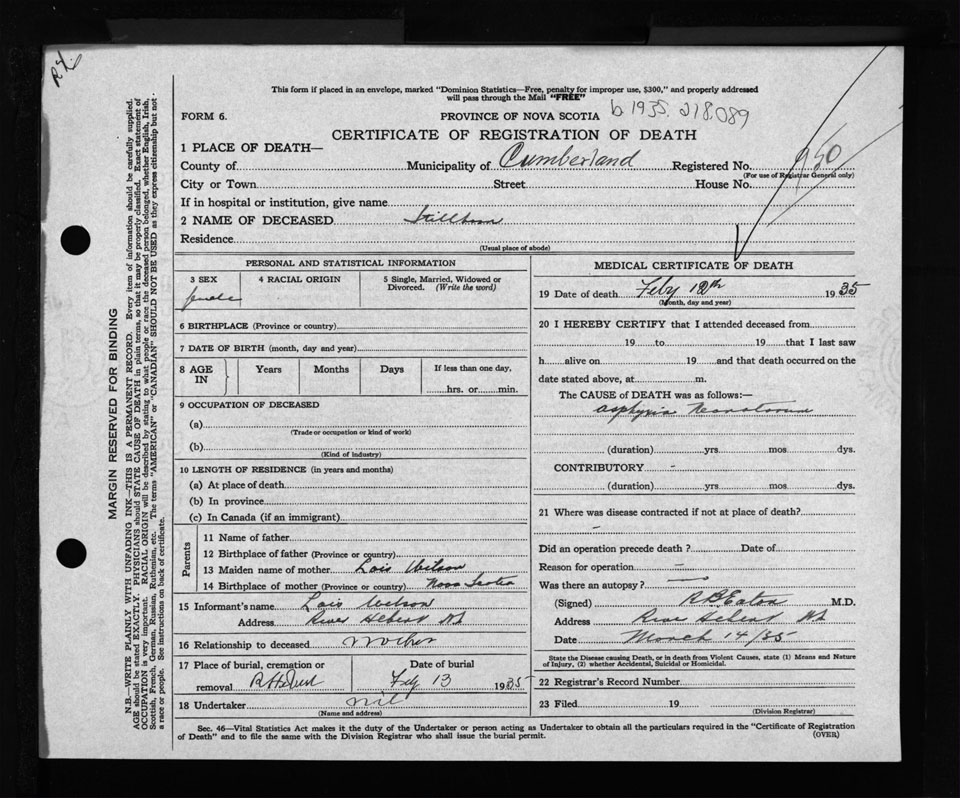 R.L.
This form if placed in an envelope, marked "Dominion Statistics—Free, penalty for improper use, $300," and properly addressed
will pass through the Mail "FREE"
FORM 6.
PROVINCE OF NOVA SCOTIA
b 1935. 218,089
CERTIFICATE OF REGISTRATION OF DEATH
1 PLACE OF DEATH—
County of Municipality of Cumberland Registered No. 950
(For use of Registrar General only)
City or Town Street House No.
If in hospital or institution, give name
2 NAME OF DECEASED Stillborn
Residence
(Usual place of abode)
PERSONAL AND STATISTICAL INFORMATION
3 SEX 4 RACIAL ORIGIN 5 Single, Married, Widowed or
Divorced. (Write the word)
female
6 BIRTHPLACE (Province or country)
7 DATE OF BIRTH (month, day and year)
8 AGE
IN
Years Months Days If less than one day,
hrs. or min.
9 OCCUPATION OF DECEASED
(a)
(Trade or occupation or kind of work)
(b)
(Kind of industry)
10 LENGTH OF RESIDENCE (in years and months)
(a) At place of death
(b) In province
(c) In Canada (if an immigrant)
Parents
11 Name of father
12 Birthplace of father (Province or country)
13 Maiden name of mother Lois Wilson
14 Birthplace of mother (Province or country) Nova Scotia
15 Informant's name Lois Wilson
Address River Hebert NS
16 Relationship to deceased mother
17 Place of burial, cremation or Date of burial
removal R Hebert Feby 13 1935
18 Undertaker nil
(Name and address)
MEDICAL CERTIFICATE OF DEATH
19 Date of death Feby 12th 1935
(Month, day and year)
20 I HEREBY CERTIFY that I attended deceased from
19 to 19 that I last saw
h alive on 19 and that death occurred on the
date stated above, at m.
The CAUSE of DEATH was as follows:—
asphyxia Neonatorum
(duration) yrs mos dys.
CONTRIBUTORY -
(duration) yrs mos dys.
21 Where was disease contracted if not at place of death?
-
Did an operation precede death ? Date of
Reason for operation -
Was there an autopsy? -
(Signed) R B Eaton M.D.
Address River Hebert NS
Date March 14/35
State the Disease causing Death, or in death from Violent Causes, state (1) Means and Nature
of Injury, (2) whether Accidental, Suicidal or Homicidal.
22 Registrar's Record Number
23 Filed 19
(Division Registrar)
Sec. 46—Vital Statistics Act makes it the duty of the Undertaker or person acting as Undertaker to obtain all the particulars required in the "Certificate of Registration
of Death" and to file the same with the Division Registrar who shall issue the burial permit.
(OVER)
MARGIN RESERVED FOR BINDING
N.B.—WRITE PLAINLY WITH UNFADING INK—THIS IS A PERMANENT RECORD. Every item of information should be carefully supplied.
AGE should be stated EXACTLY. PHYSICIANS should STATE CAUSE OF DEATH in plain terms, so that it may be properly classified. Exact statement of
OCCUPATION is very important. RACIAL ORIGIN will be described by stating to what people or race the deceased person belonged, whether English, Irish,
Scottish, French, German, Russian, Ruthenian, etc. The terms "AMERICAN" or "CANADIAN" SHOULD NOT BE USED as they express citizenship but not
a race or people. See instructions on back of certificate.